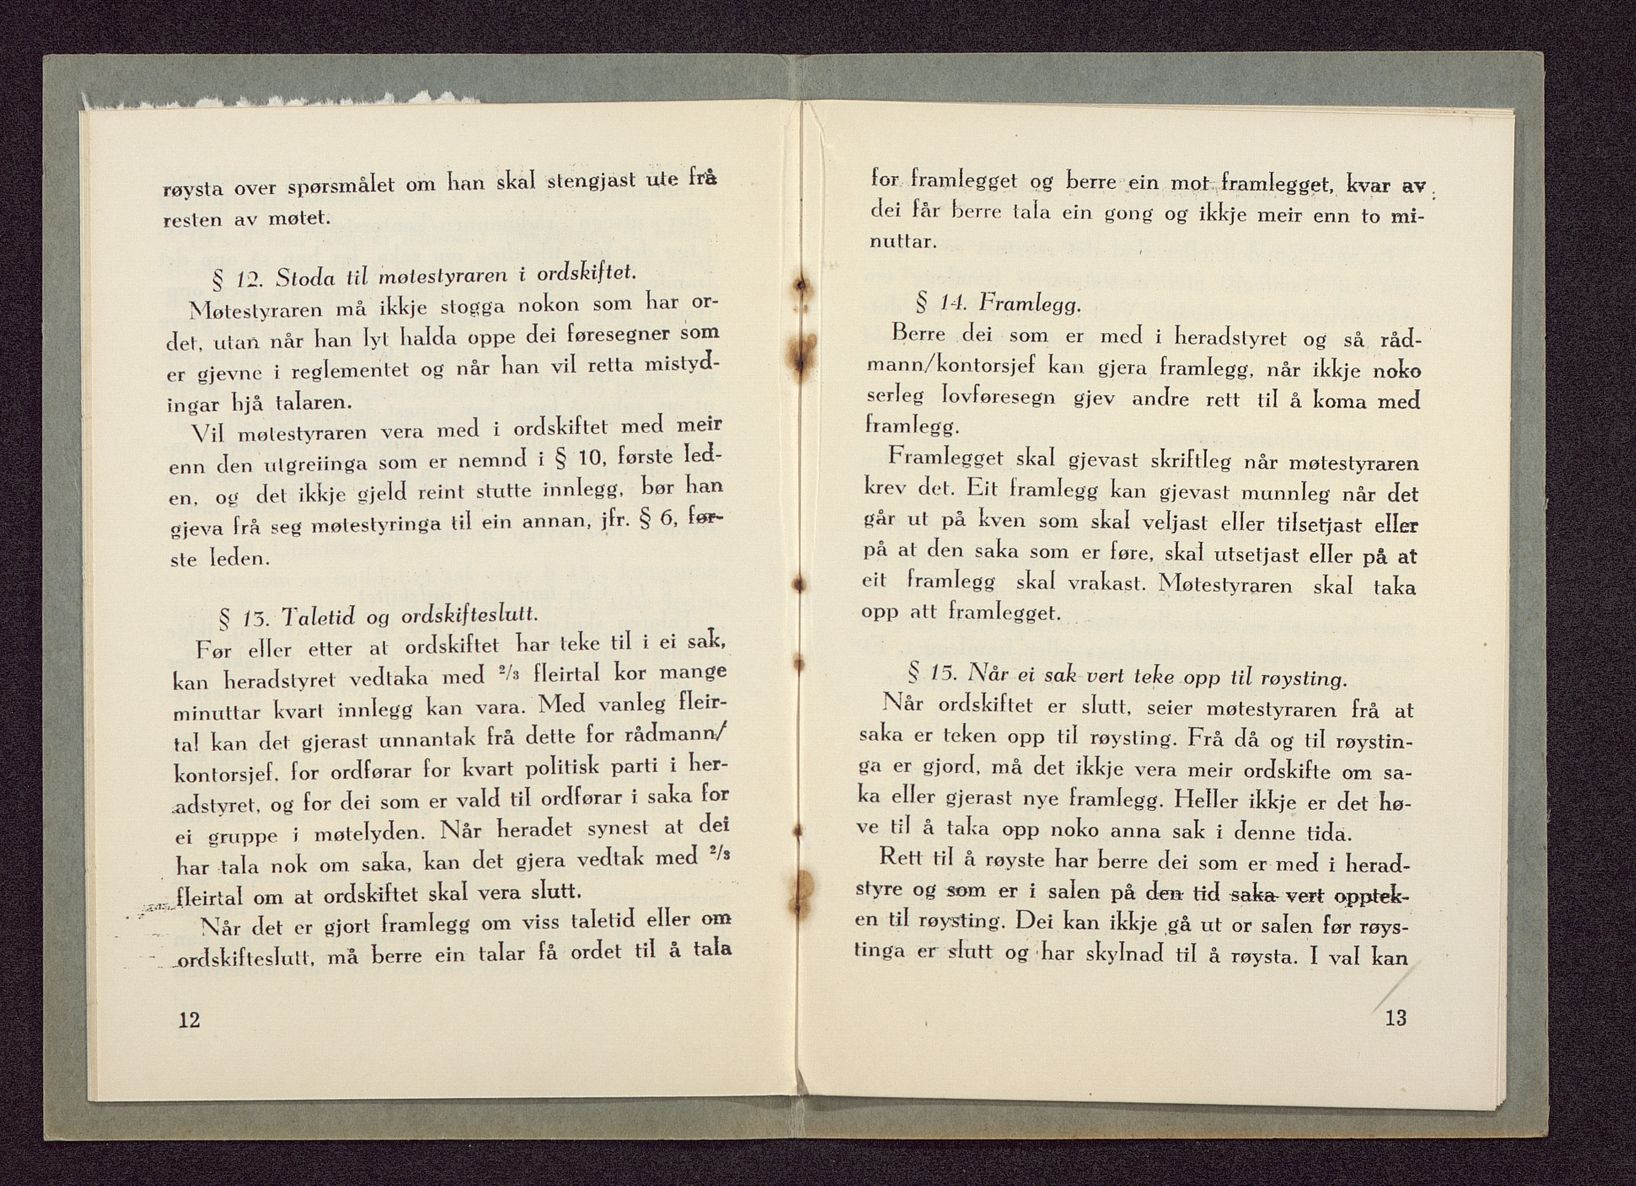 røysta over spørsmålet om han skal stengjast ute frå
resten av møtet.
§ 12. Stoda til møtestyraren i ordskiftet.
Møtestyraren må ikkje stogga nokon som har or-
det, utan når han lyt halda oppe dei føresegner som
er gjevne i reglementet og når han vil retta mistyd-
ingar hjå talaren.
Vil møtestyraren vera med i ordskiftet med meir
enn den utgreiinga som er nemnd i § 10, første led-
en, og det ikkje gjeld reint stutte innlegg, bør han
gjeva frå seg møtestyringa til ein annan, jfr. § 6, før-
ste leden.
§ 13. Taletid og ordskifteslutt.
Før eller etter at ordskiftet har teke til i ei sak,
kan heradstyret vedtaka med 2/3 fleirtal kor mange
minuttar kvart innlegg kan vara. Med vanleg fleir-
tal kan det gjerast unnantak frå dette for rådmann/
kontorsjef, for ordførar for kvart politisk parti i her-
adstyret, og for dei som er vald til ordførar i saka for
ei gruppe i møtelyden. Når heradet synest at dei
har tala nok om saka, kan det gjera vedtak med 2/3
fleirtal om at ordskiftet skal vera slutt.
Når det er gjort framlegg om viss taletid eller om
ordskifteslutt, må berre ein talar få ordet til å tala
12
for framlegget og berre ein mot framlegget, kvar av
dei får berre tala ein gong og ikkje meir enn to mi-
nuttar.
§ 14. Framlegg.
Berre dei som er med i heradstyret og så råd-
mann/kontorsjef kan gjera framlegg, når ikkje noko
serleg lovføresegn gjev andre rett til å koma med
framlegg.
Framlegget skal gjevast skriftleg når møtestyraren
krev det. Eit framlegg kan gjevast munnleg når det
går ut på kven som skal veljast eller tilsetjast eller
på at den saka som er føre, skal utsetjast eller på at
eit framlegg skal vrakast. Møtestyraren skal taka
opp att framlegget.
§ 15. Når ei sak vert teke opp til røysting.
Når ordskiftet er slutt, seier møtestyraren frå at
saka er teken opp til røysting. Frå då og til røystin-
ga er gjord, må det ikkje vera meir ordskifte om sa-
ka eller gjerast nye framlegg. Heller ikkje er det hø-
ve til å taka opp noko anna sak i denne tida.
Rett til å røyste har berre dei som er med i herad-
styre og som er i salen på den tid saka vert opptek-
en til røysting. Dei kan ikkje gå ut or salen før røys-
tinga er slutt og har skylnad til å røysta. I val kan
13